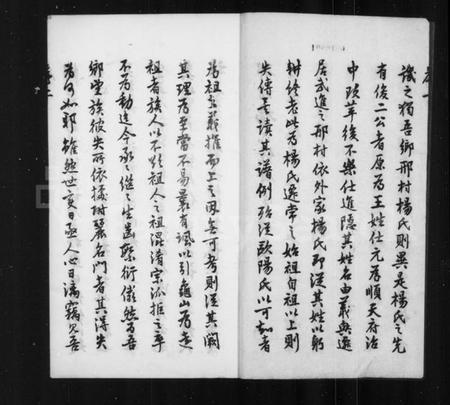 譏之獨吾鄉邢村楊氏則異是楊氏之先
有俊二公者原為王姓仕元為順天府治
中項革後不樂仕進隱其姓名由義興遊
居武進之邢村依外家楊氏即從其姓以躬
耕終老此為楊氏逸常之始祖自祖以上則
失傳矣讀其譜例殆從歐陽氏以可知者
為祖之義推而上之因無可考則從其闕
其理為至當不易最有諷以引龜山為走
祖者族人以不欺祖人之祖混淆宗派拒之卒
不為動迄今承之繼之生齒繁衍儼然為吾
鄉望族彼失所依據附麗名門者其得失
為何如耶雖然世變日亟人心日漓竊見吾